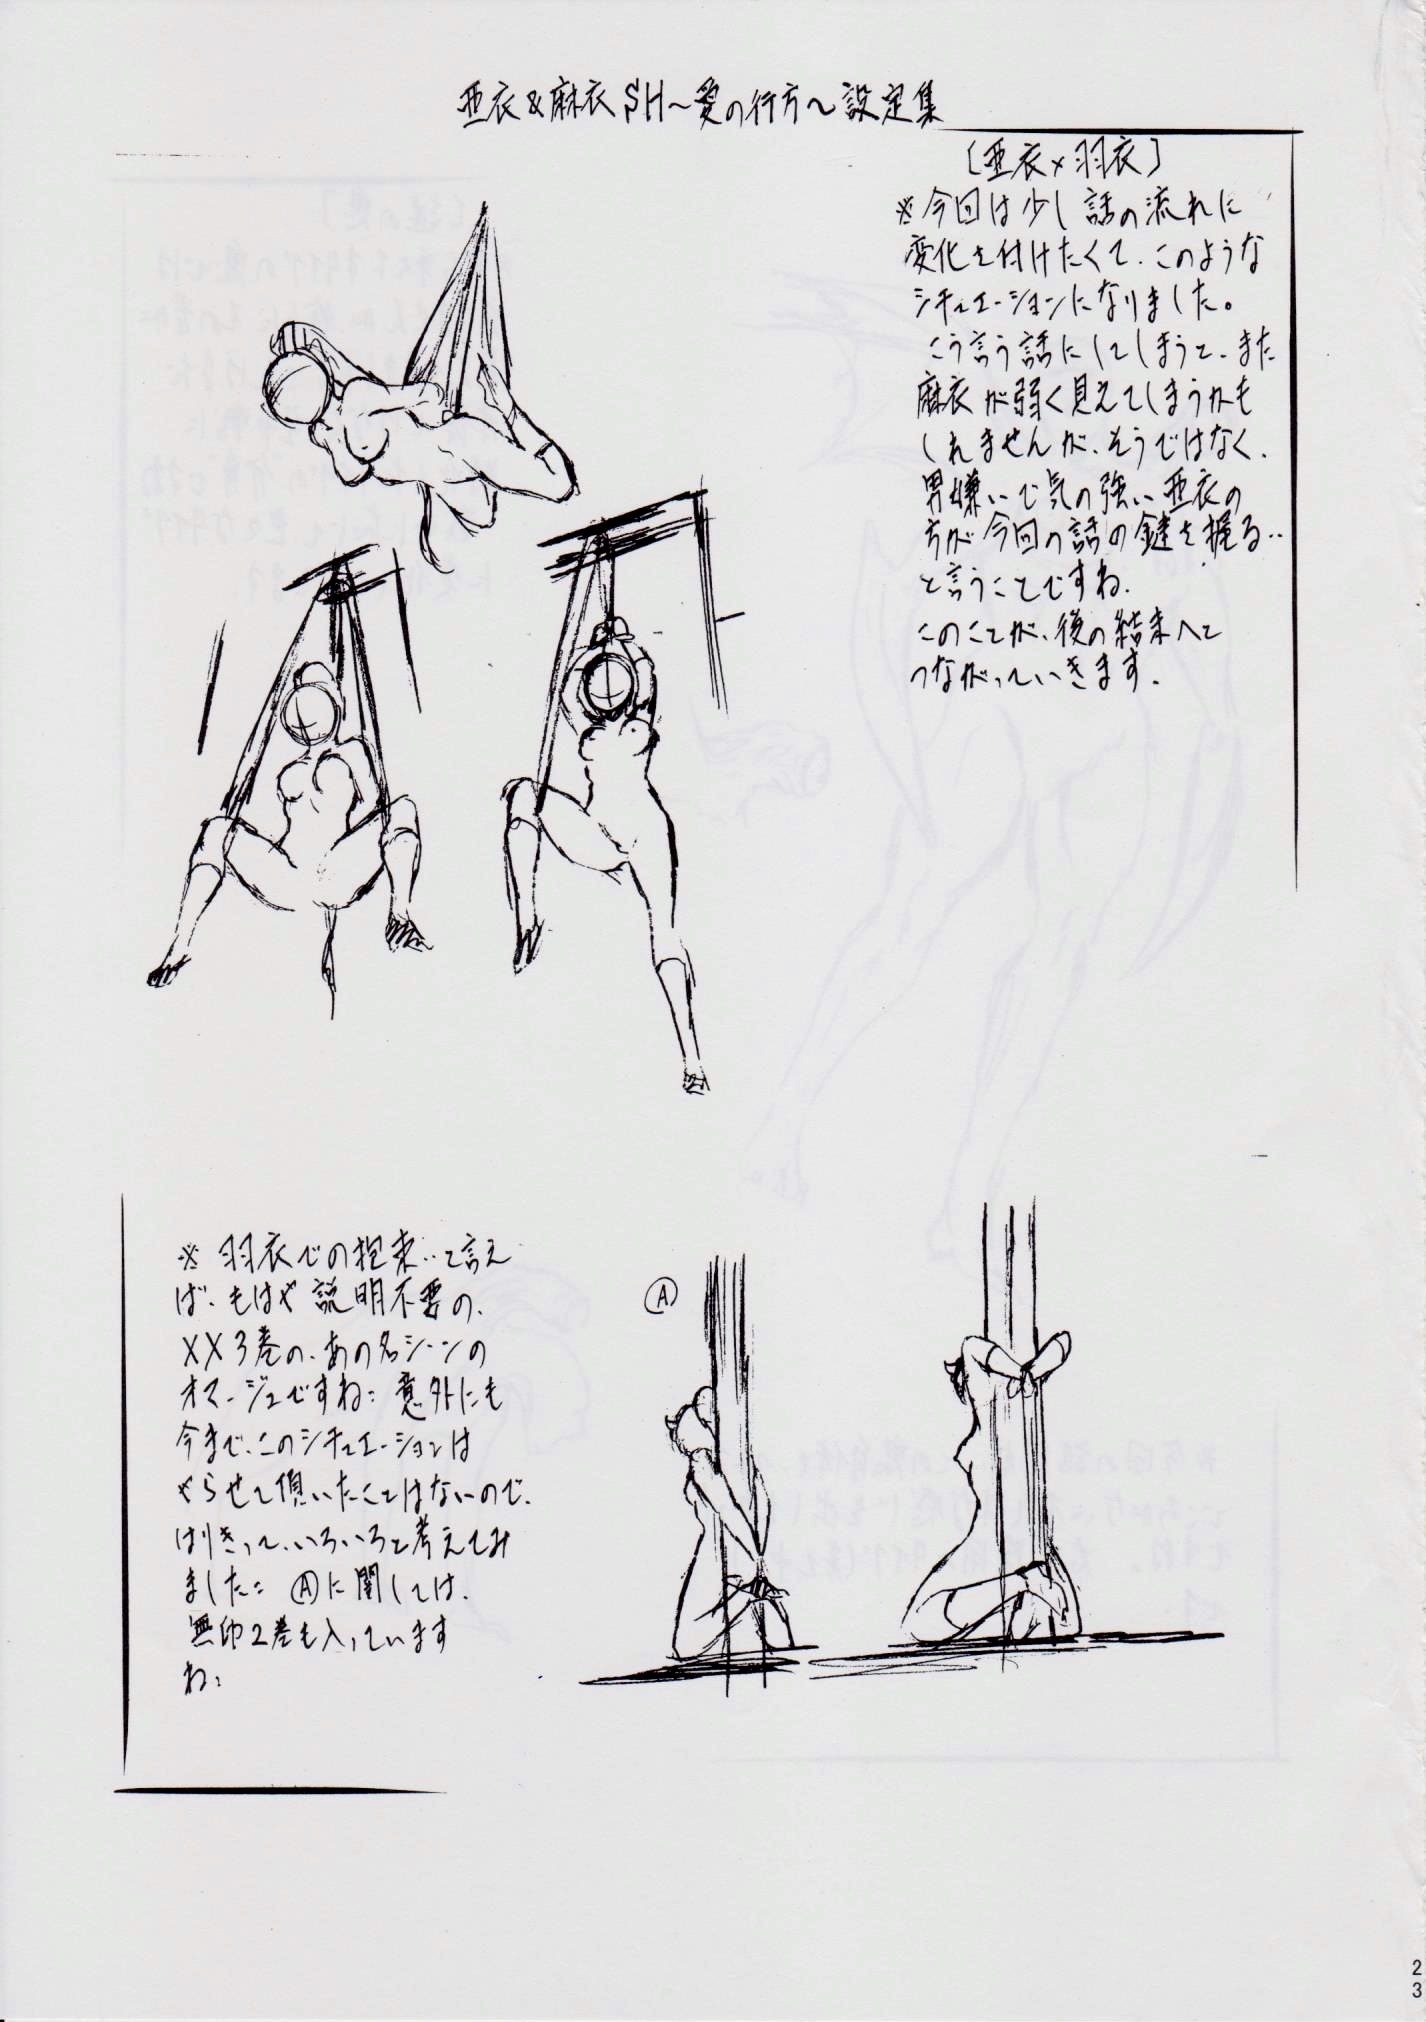 亜衣&麻衣SH～愛の行方～設定集
[亜衣×羽衣]
※今回は少し話の流れに
変化を付けたくて、このような
シチュエーションになりました。
こう言う話にしてしまうと、また
麻衣が弱く見えてしまうかも
しれませんが、そうではなく、
男嫌いで気の強い亜衣の
方が今回の話の鍵を握る‥
と言うことですね、
このことが、後の結末へと
つながっていきます.
※羽衣での拘束‥と言え
ば、もはや説明不要の、
XX3巻の、あの名シーンの
オマージュですね: 意外にも
今まで、このシチュエーションは
やらせて頂いたことはないので、
はりきって、いろいろと考えてみ
ました: Ⓐに関しては、
無印2巻も入っています
ね:
Ⓐ
23